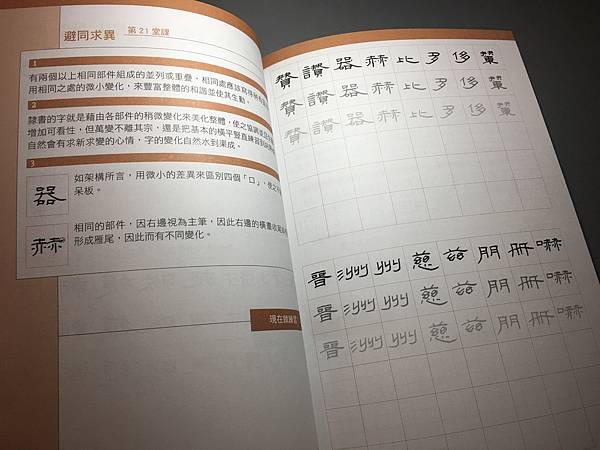 避同求異 第21堂課
1
有兩個以上相同部件組成的並列或重疊，相同處應該
用相同之處的微小變化，來豐富整體的和諧並使其生動。
2
隸書的字就是藉由各部件的稍微變化來美化整體，使之協調
增加可看性，但萬變不離其宗，還是把基本的橫平豎直練習到
自然會有求新求變的心情，字的變化自然水到渠成。
3
器
如架構所言，用微小的差異來區別四個「口」，使之不
呆板。
赫
相同的部件，因右邊視為主筆，因此右邊的橫畫收尾
形成雁尾，因此而有不同變化。
現在就練習
贊 讚 器 赫 比 多 侈
贊 讚 器 赫 比 多 侈
贊 讚 器 赫 比 多 侈
晉 洲 州 慈 茲 朋 冊 嚇
晉 洲 州 慈 茲 朋 冊 嚇
晉 洲 州 慈 茲 朋 冊 嚇